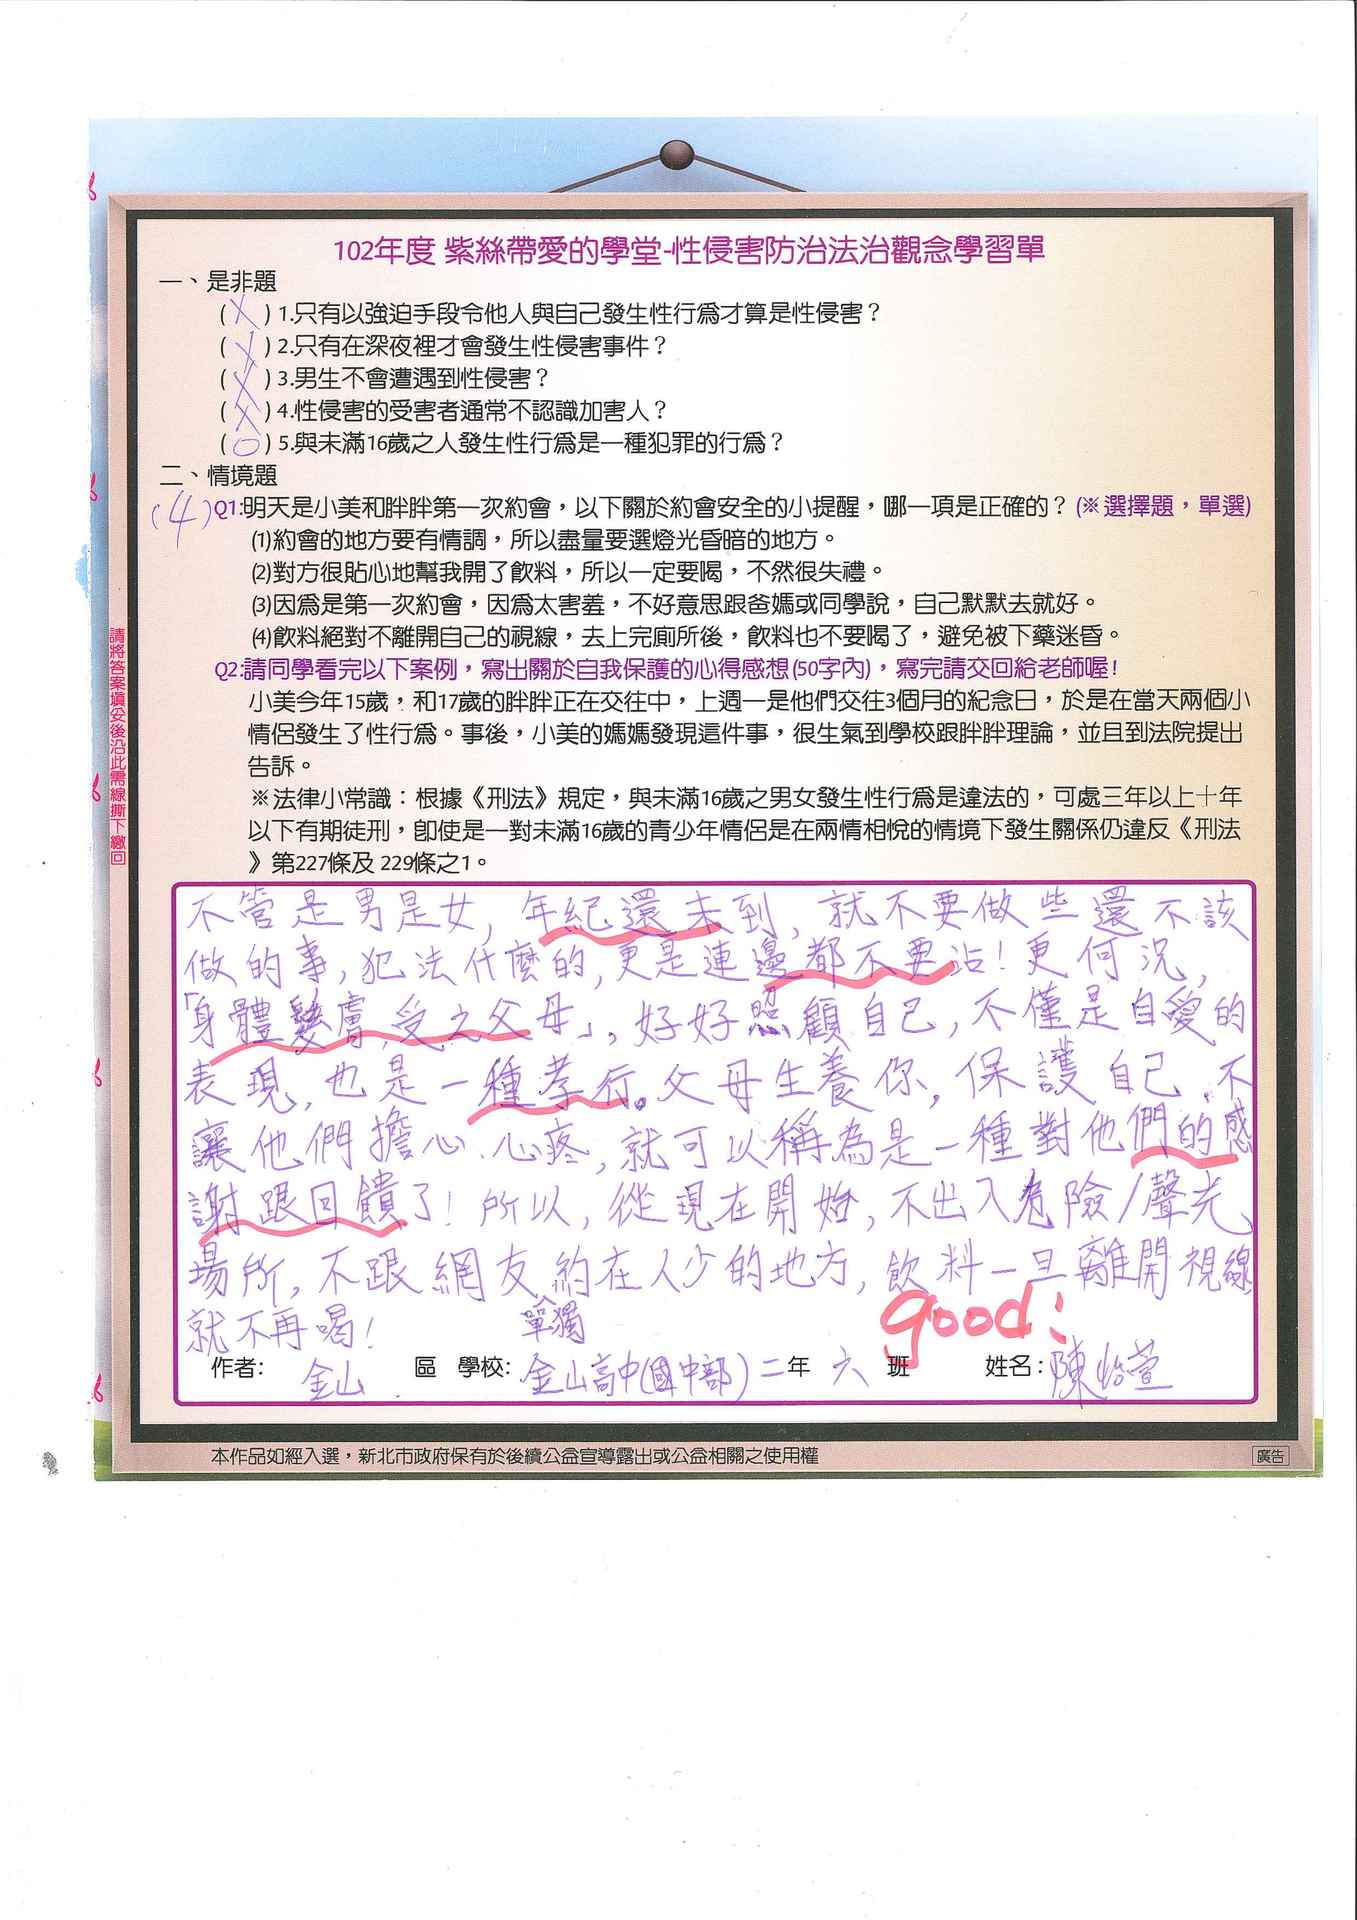 102年度 紫絲帶愛的學堂-性侵害防治法治觀念學習單
一、是非題
(X) 1.只有以強迫手段令他人與自己發生性行為才算是性侵害？
(X) 2.只有在深夜裡才會發生性侵害事件？
(X) 3.男生不會遭遇到性侵害？
(X) 4.性侵害的受害者通常不認識加害人？
(O) 5.與未滿16歲之人發生性行為是一種犯罪的行為？
二、情境題
(4) Q1:明天是小美和胖胖第一次約會，以下關於約會安全的小提醒，哪一項是正確的？(※選擇題，單選)
(1)約會的地方要有情調，所以盡量要選燈光昏暗的地方。
(2)對方很貼心地幫我開了飲料，所以一定要喝，不然很失禮。
(3)因為是第一次約會，因為太害羞，不好意思跟爸媽或同學說，自己默默去就好。
(4)飲料絕對不離開自己的視線，去上完廁所後，飲料也不要喝了，避免被下藥迷昏。
Q2:請同學看完以下案例，寫出關於自我保護的心得感想(50字內)，寫完請交回給老師喔！
小美今年15歲，和17歲的胖胖正在交往中，上週一是他們交往3個月的紀念日，於是在當天兩個小
情侶發生了性行為。事後，小美的媽媽發現這件事，很生氣到學校跟胖胖理論，並且到法院提出
告訴。
※法律小常識：根據《刑法》規定，與未滿16歲之男女發生性行為是違法的，可處三年以上十年
以下有期徒刑，即使是一對未滿16歲的青少年情侶是在兩情相悅的情境下發生關係仍違反《刑法
》第227條及 229條之1。
不管是男是女，年紀還未到，就不要做些還不該
做的事，犯法什麼的，更是連邊都不要沾！更何況，
「身體髮膚，受之父母」，好好照顧自己，不僅是自愛的
表現，也是一種孝行。父母生養你，保護自己、不
讓他們擔心、心疼，就可以稱為是一種對他們的感
謝跟回饋了！所以，從現在開始，不出入危險/聲光
場所，不跟網友單獨約在人少的地方，飲料一旦離開視線
就不再喝！
good！
作者：金山 區 學校：金山高中(國中部) 二年 六 班 姓名：陳怡萱
本作品如經入選，新北市政府保有於後續公益宣導露出或公益相關之使用權
廣告
請將答案填妥後沿此需線撕下繳回